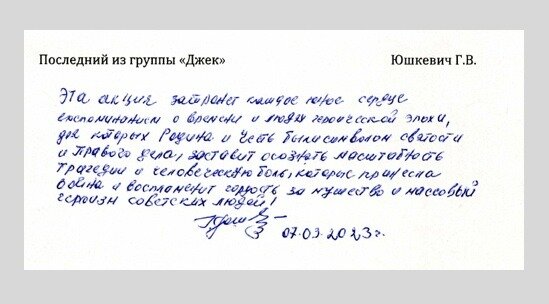 Последний из группы «Джек» Юшкевич Г.В.
Эта акция затронет каждое юное сердце
воспоминанием о времени и людях героической эпохи,
для которых Родина и Честь были символом святости
и правого дела, заставит осознать масштабность
трагедии и человеческую боль, которые принесла
война и воспламенит гордость за мужество и массовый
героизм советских людей!
07.03.2023г.